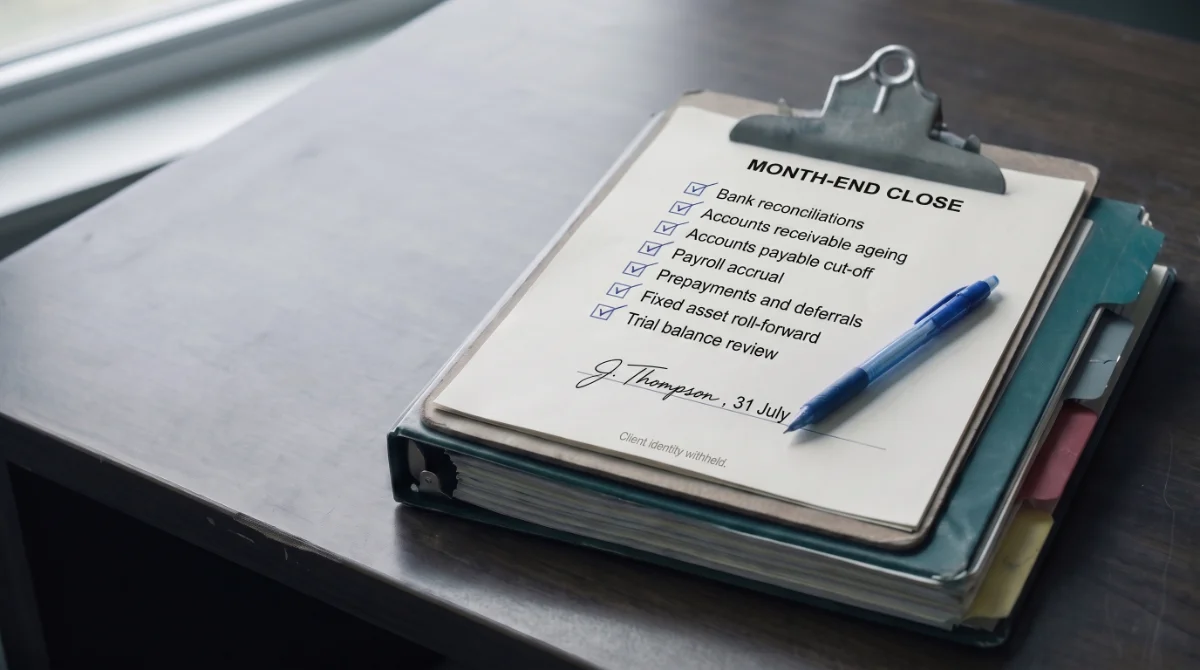 MONTH-END CLOSE
Bank reconciliations
Accounts receivable ageing
Accounts payable cut-off
Payroll accrual
Prepayments and deferrals
Fixed asset roll-forward
Trial balance review
J. Thompson, 31 July
Client identity withheld.